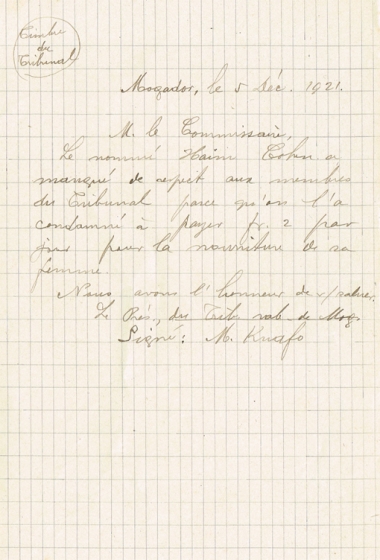 Timbre
du
Tribunal
Mogador, le 5 Déc. 1921.
M. le Commissaire,
Le nommé Haim Cohen a
manqué de respect aux membres
du Tribunal parce qu'on l'a
condamné à payer fr. 2 par
jour pour la nourriture de sa
femme.
Nous avons l'honneur de v/ saluer.
Le Prés. du Trib. rab. de Mog.
Signé: M. Knafo